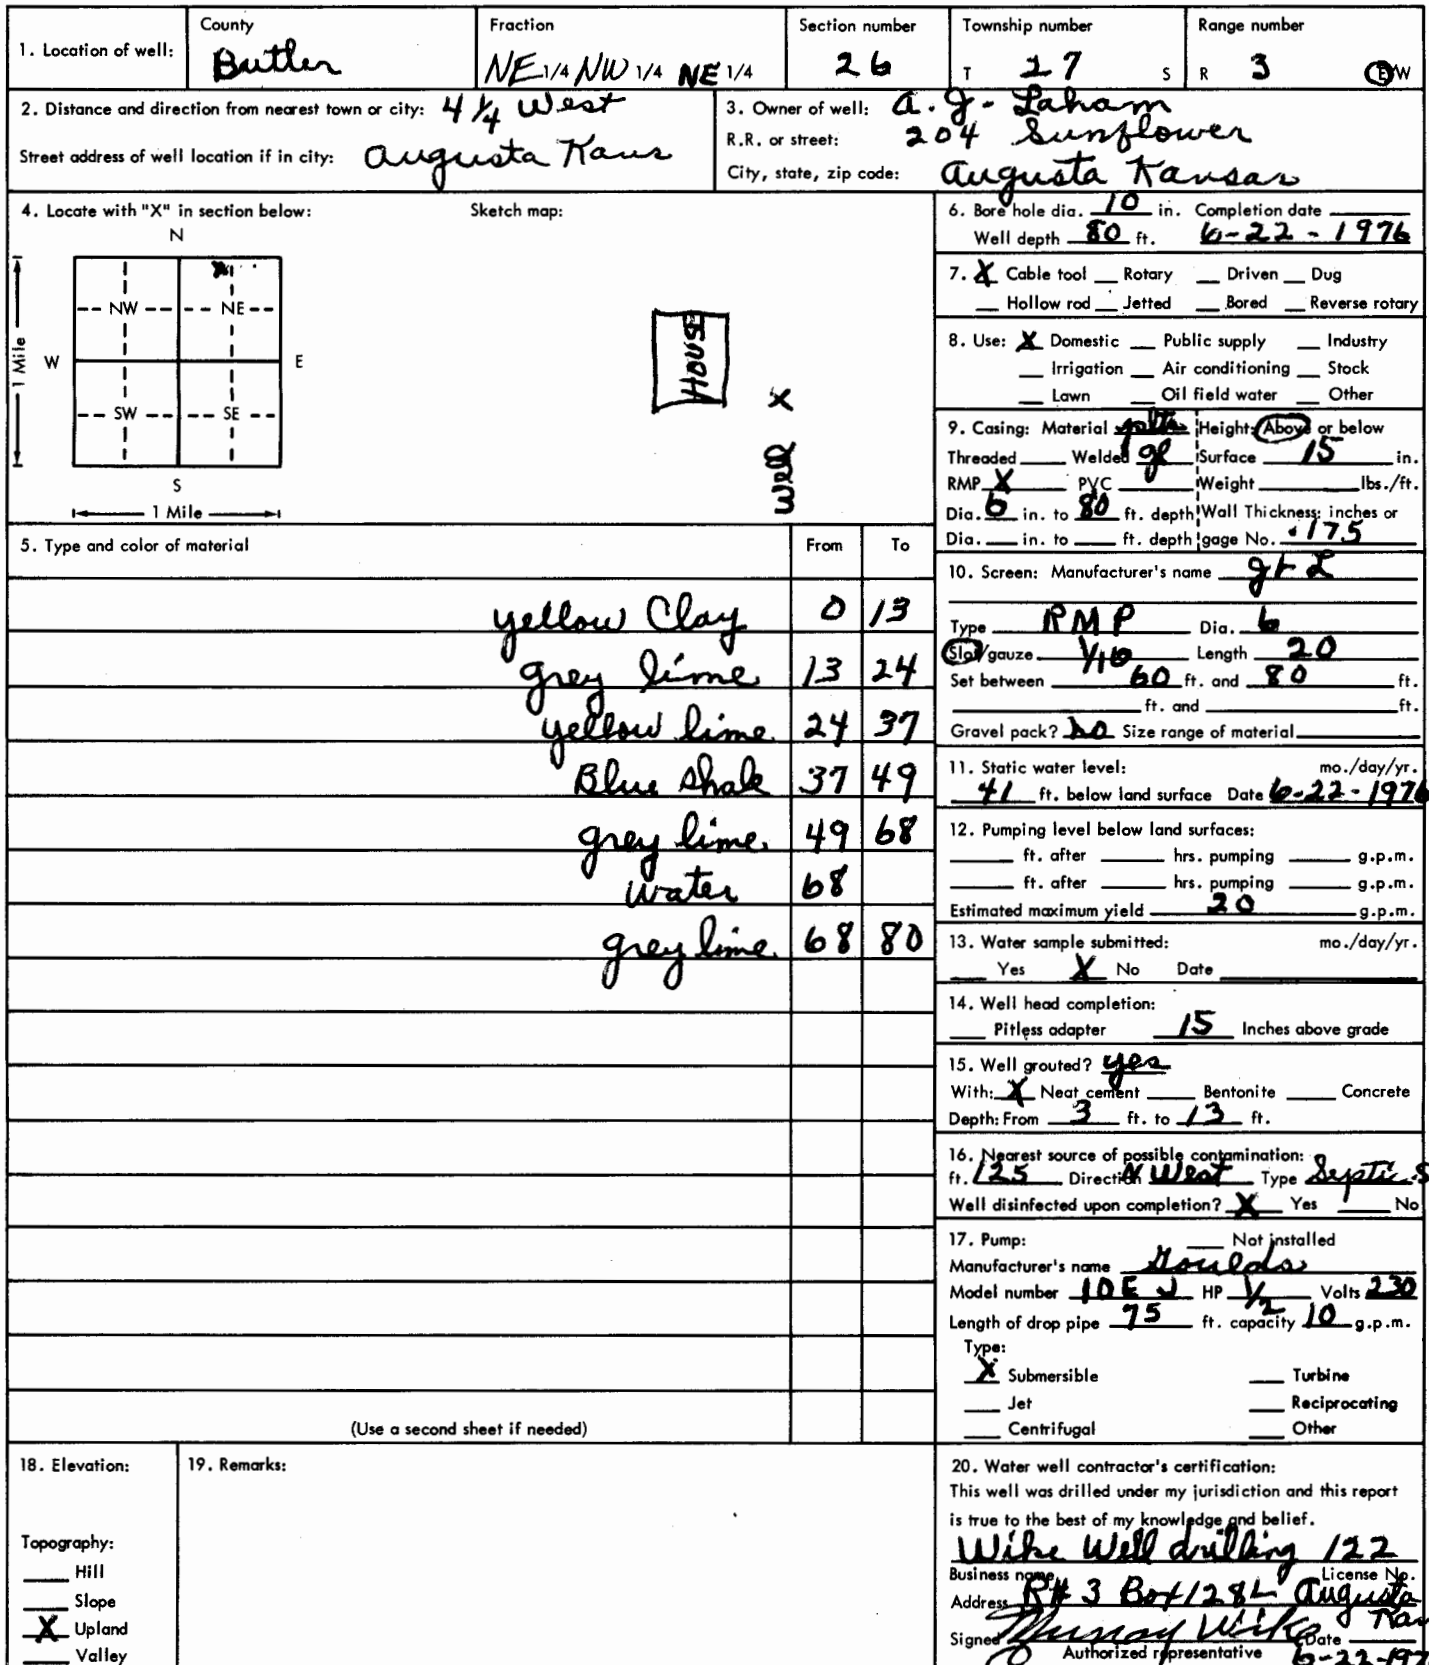 1. Location of well: County Butler Fraction NE 1/4 NW 1/4 NE 1/4 Section number 26 Township number T 27 S Range number R 3 E/W
2. Distance and direction from nearest town or city: 4 1/4 West
Street address of well location if in city: Augusta Kans
3. Owner of well: A. J. Laham
R.R. or street: 204 Sunflower
City, state, zip code: Augusta Kansas
4. Locate with "X" in section below: Sketch map:
N
NW NE
W E
SW SE
S
1 Mile
1 Mile
House
Well X
5. Type and color of material From To
yellow Clay 0 13
grey lime 13 24
yellow lime 24 37
Blue shale 37 49
grey lime 49 68
water 68
grey lime 68 80
(Use a second sheet if needed)
6. Bore hole dia. 10 in. Completion date
Well depth 80 ft. 6-22-1976
7. X Cable tool __ Rotary __ Driven __ Dug
__ Hollow rod __ Jetted __ Bored __ Reverse rotary
8. Use: X Domestic __ Public supply __ Industry
__ Irrigation __ Air conditioning __ Stock
__ Lawn __ Oil field water __ Other
9. Casing: Material Height: Above or below
Threaded ___ Welded gl Surface 15 in.
RMP X PVC ___ Weight ___ lbs./ft.
Dia. 6 in. to 80 ft. depth Wall Thickness: inches or
Dia. ___ in. to ___ ft. depth gage No. .175
10. Screen: Manufacturer's name
Type RMP Dia. 6
Slot/gauze 1/16 Length 20
Set between 60 ft. and 80 ft.
___ ft. and ___ ft.
Gravel pack? No Size range of material
11. Static water level: mo./day/yr.
41 ft. below land surface Date 6-22-1976
12. Pumping level below land surfaces:
___ ft. after ___ hrs. pumping ___ g.p.m.
___ ft. after ___ hrs. pumping ___ g.p.m.
Estimated maximum yield 20 g.p.m.
13. Water sample submitted: mo./day/yr.
___ Yes X No Date
14. Well head completion:
___ Pitless adapter 15 Inches above grade
15. Well grouted? yes
With: X Neat cement ___ Bentonite ___ Concrete
Depth: From 3 ft. to 13 ft.
16. Nearest source of possible contamination:
ft. 125 Direction N West Type Septic S
Well disinfected upon completion? X Yes ___ No
17. Pump: ___ Not installed
Manufacturer's name Goulds
Model number 10EJ HP 1/2 Volts 230
Length of drop pipe 75 ft. capacity 10 g.p.m.
Type:
X Submersible ___ Turbine
___ Jet ___ Reciprocating
___ Centrifugal ___ Other
18. Elevation:
Topography:
___ Hill
___ Slope
X Upland
___ Valley
19. Remarks:
20. Water well contractor's certification:
This well was drilled under my jurisdiction and this report
is true to the best of my knowledge and belief.
Wike Well drilling 122
Business name License No.
Address R# 3 Box 128L Augusta
Kan
Signed Murray Wike Date
Authorized representative 6-22-197